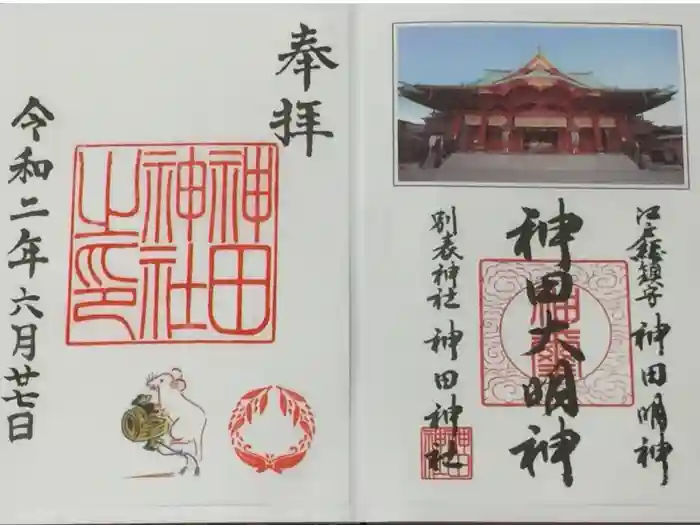 江戸總鎮守 神田明神
神田大明神
別表神社 神田神社
奉拝
神田
神社
之印
令和二年六月廿七日